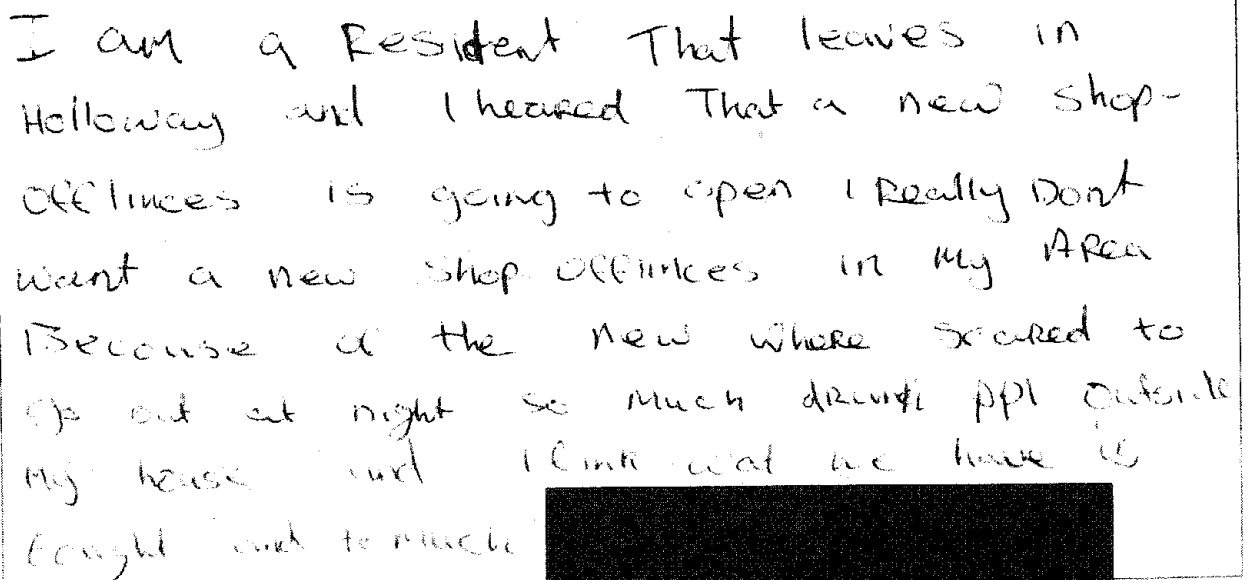 I am a Resident That leaves in
Holloway and I heared That a new shop-
Offlinces is going to open I Really Dont
want a new shop Offlinces in My Area
Because of the new where scared to
go out at night so Much drunk ppl outside
My house and I think wat we have is
and to Much